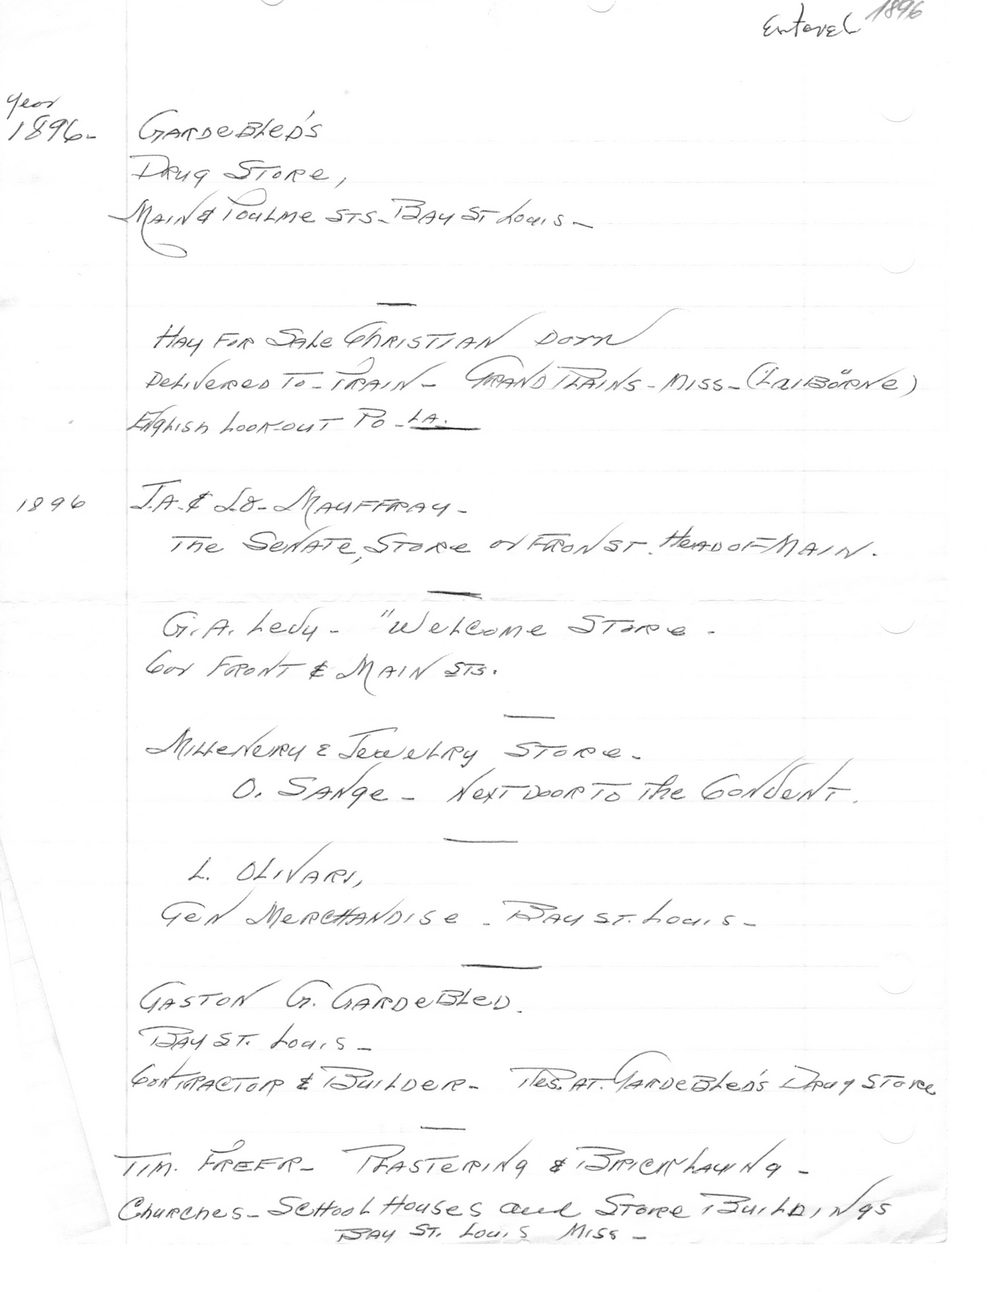 Entered 1896
Year
1896- Gardebled's
Drug Store,
Main & Toulme Sts- Bay St Louis-
Hay For Sale Christian Dorn
Delivered To- Train- Grand Plains- Miss- (
English Lookout Po- La.
1896 J.A. & Lo- Mauffray-
The Senate, Store on Fron St. Head of Main.
G.A. Levy- "Welcome Store-
Cor Front & Main Sts.
Millenery & Jewelry Store-
O. Sange- Next Door To The Convent.
L. Olivari,
Gen Merchandise- Bay St. Louis-
Gaston G. Gardebled.
Bay St. Louis-
Contractor & Builder- Res. At. Gardebled's Drug Store
Tim. Freer- Plastering & Bricklaying-
Churches- School Houses and Store Buildings
Bay St. Louis Miss-